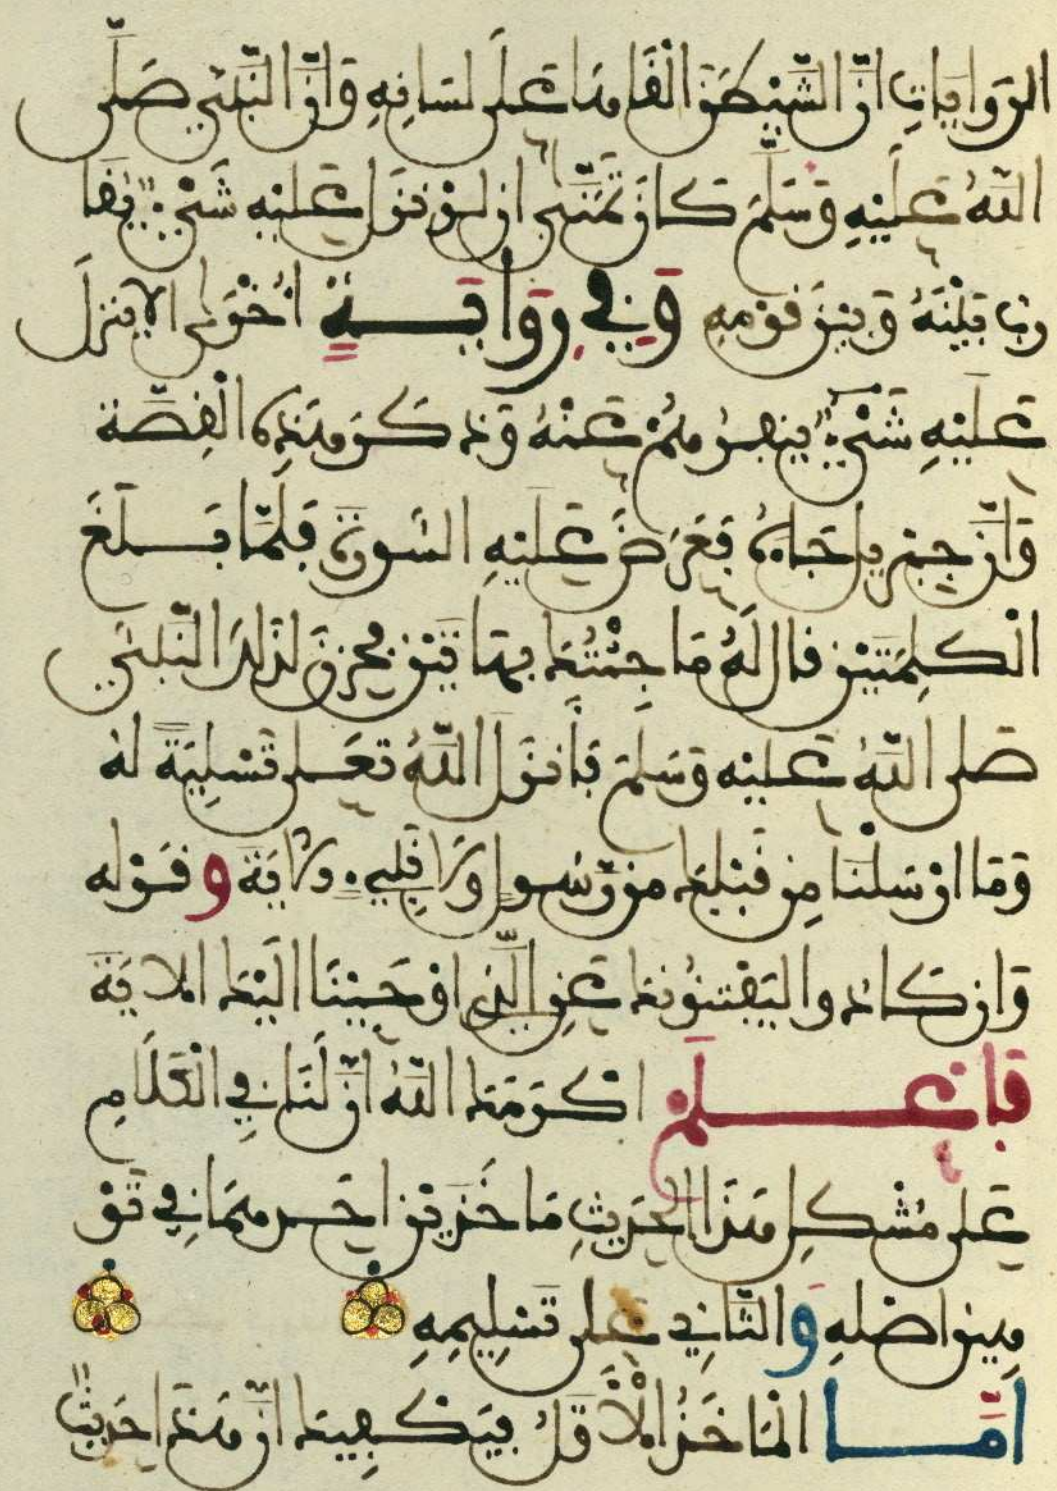 الروايات ان الشيطن القاها على لسانه وان النبي صلى
الله عليه وسلم كان تمنى ان لو نزل عليه شيء يقا
رب بينه وبين قومه وفي رواية اخرى الا ينزل
عليه شيء ينفرهم عنه وذكر هذه القصة
وان جبريل جاءه فعرض عليه السورة فلما بلغ
الكلمتين قال له ما جئتك بهاتين فحزن لذلك النبي
صلى الله عليه وسلم فانزل الله تعلى تسلية له
وما ارسلنا من قبلك من رسول ولا نبيء الاية وقوله
وان كادوا ليفتنونك عن الذي اوحينا اليك الاية
فاعلم اكرمك الله ان لنا في الكلام
على مشكل هذا الحديث ماخذين احدهما في تو
هين اصله والثاني على تسليمه
اما الماخذ الاول فيكفيك ان هذا حديث